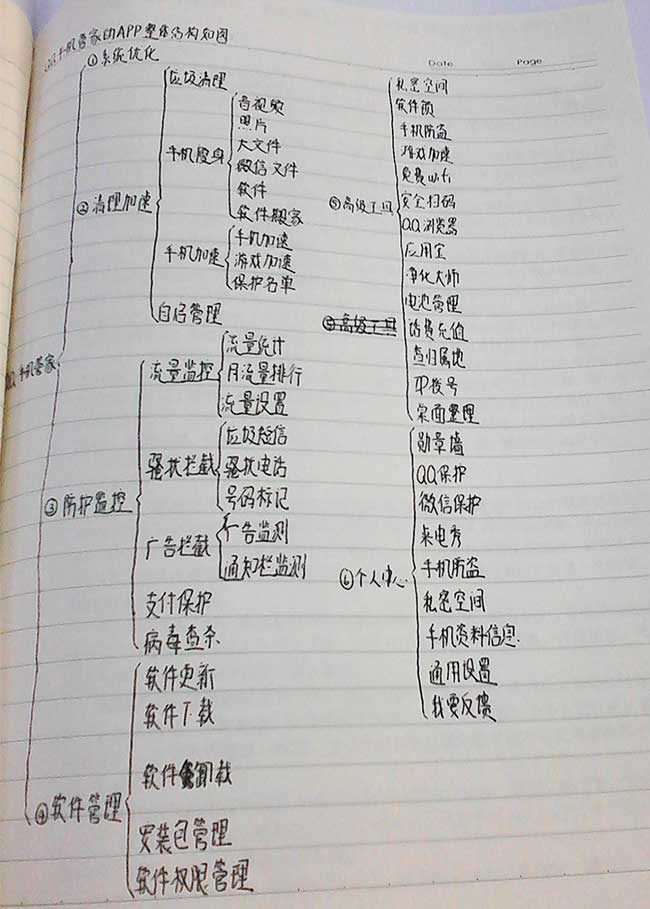 手机管家的APP整体结构知图
Date Page
①系统优化
垃圾清理
音视频
照片
大文件
手机瘦身
微信文件
软件
软件搬家
②清理加速
手机加速
手机加速
游戏加速
保护名单
自启管理
手机管家
流量统计
流量监控
月流量排行
流量设置
垃圾短信
骚扰拦截
骚扰电话
号码标记
③防护监控
广告监测
广告拦截
通知栏监测
支付保护
病毒查杀
软件更新
软件下载
软件卸载
④软件管理
安装包管理
软件权限管理
私密空间
软件锁
手机防盗
游戏加速
免费wifi
安全扫码
⑤高级工具
QQ浏览器
应用宝
净化大师
电池管理
高级工具
话费充值
查归属地
IP拨号
桌面整理
勋章墙
QQ保护
微信保护
来电秀
手机防盗
⑥个人中心
私密空间
手机资料信息
通用设置
我要反馈